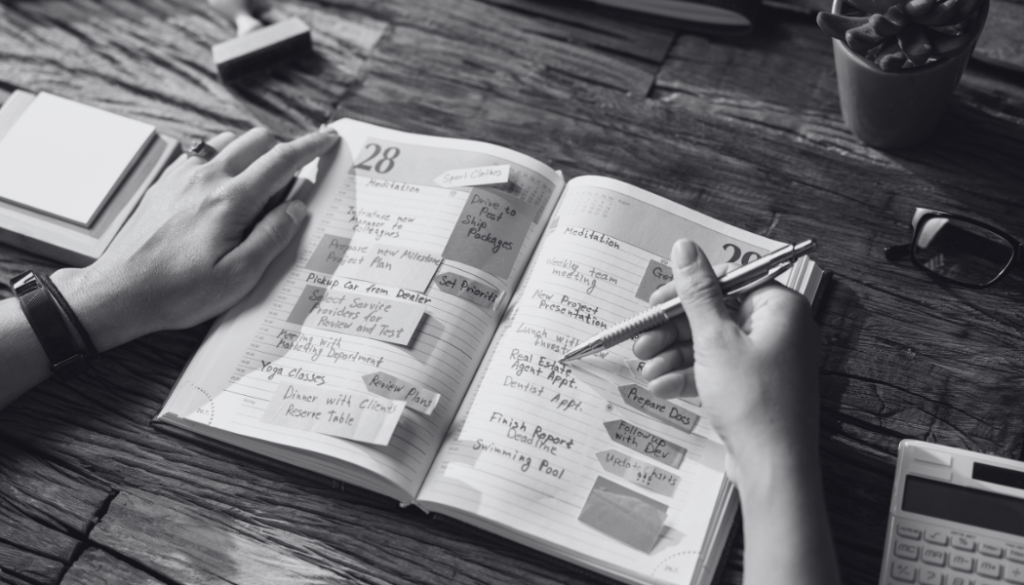 28
Sport Classes
Meditation
Drive to
Post
Ship
Packages
Introduce new
Manager to
Colleagues
Prepare new Milestone
Project Plan
Set Prioriti
Pickup Car from Dealer
Select Service
Providers for
Review and Test
Meeting with
Marketing Department
Yoga Classes
Review Plans
Dinner with Clients
Reserve Table
29
Meditation
Weekly team
meeting
New Project
Presentation
Lunch with
Real Estate
Agent Appt.
Dentist Appt.
Prepare Docs
Finish Report
Deadline
Follow up
with Dev
Swimming Pool
MC